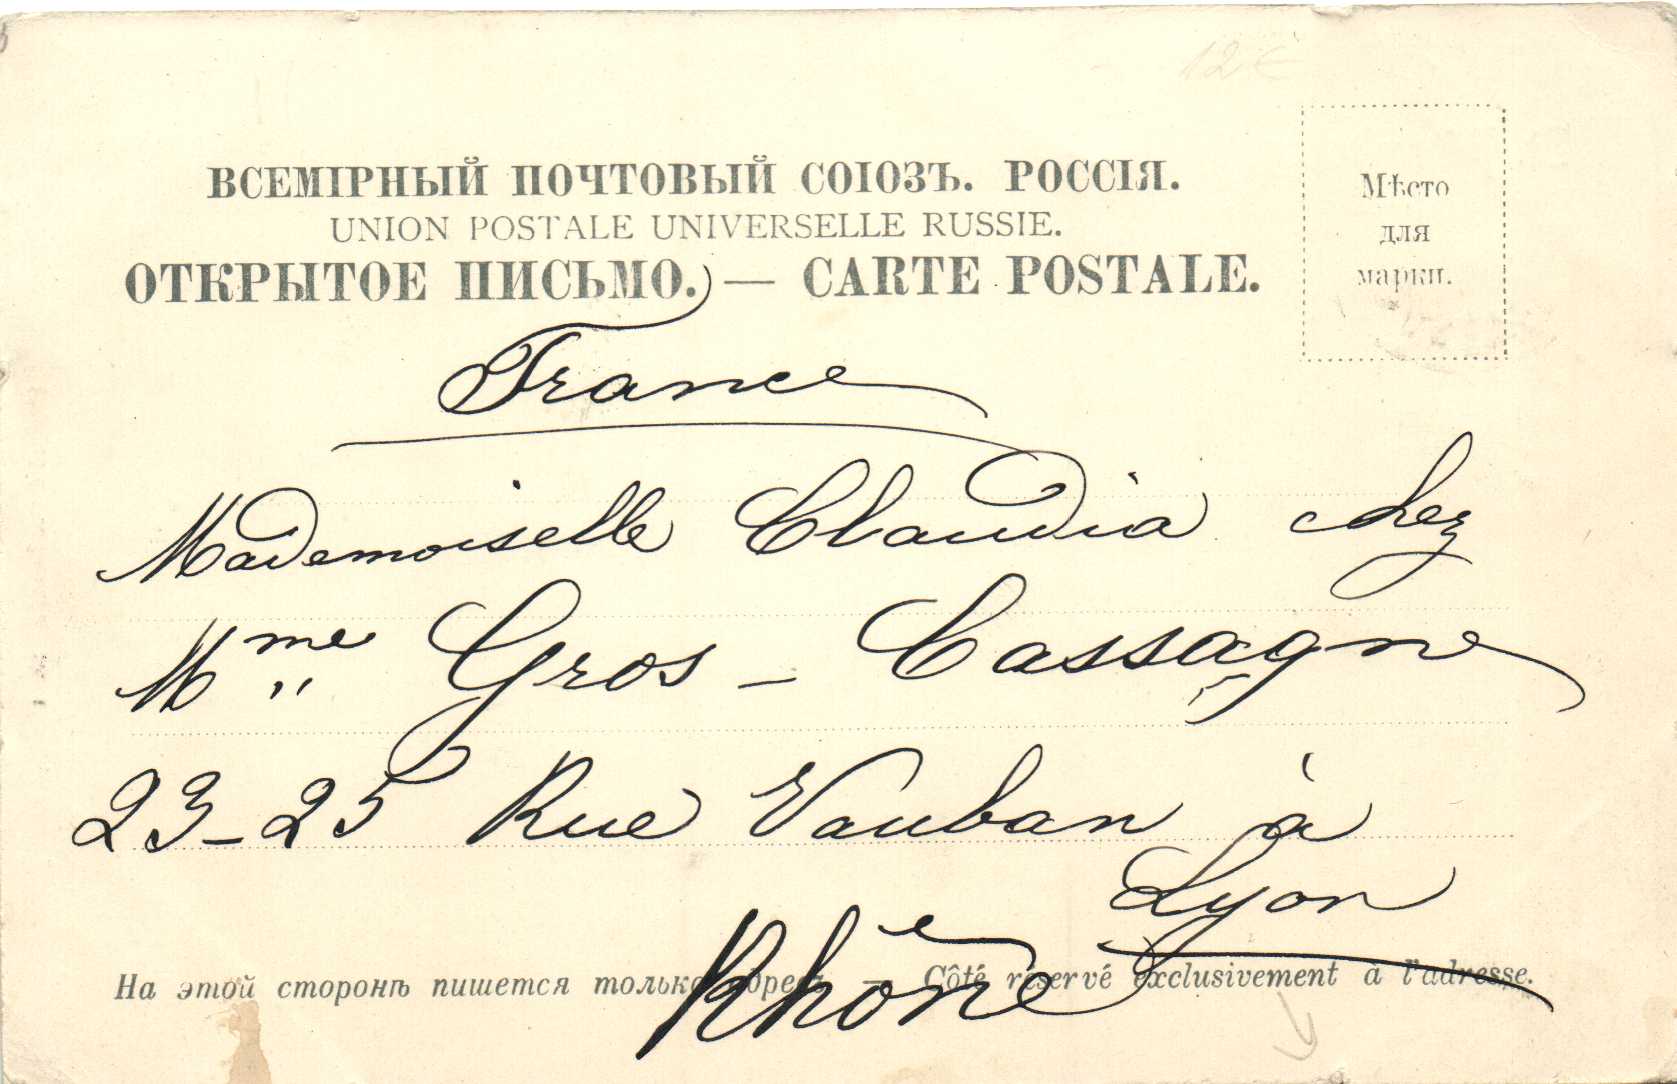 12 €
ВСЕМІРНЫЙ ПОЧТОВЫЙ СОЮЗЪ. РОССІЯ.
UNION POSTALE UNIVERSELLE RUSSIE.
ОТКРЫТОЕ ПИСЬМО. — CARTE POSTALE.
Мѣсто
для
марки.
France
Mademoiselle Claudia chez
Mme Gros - Cassagne
23-25 Rue Vauban à
Lyon
Rhône
На этой сторонѣ пишется только адресъ. — Côté réservé exclusivement a l'adresse.